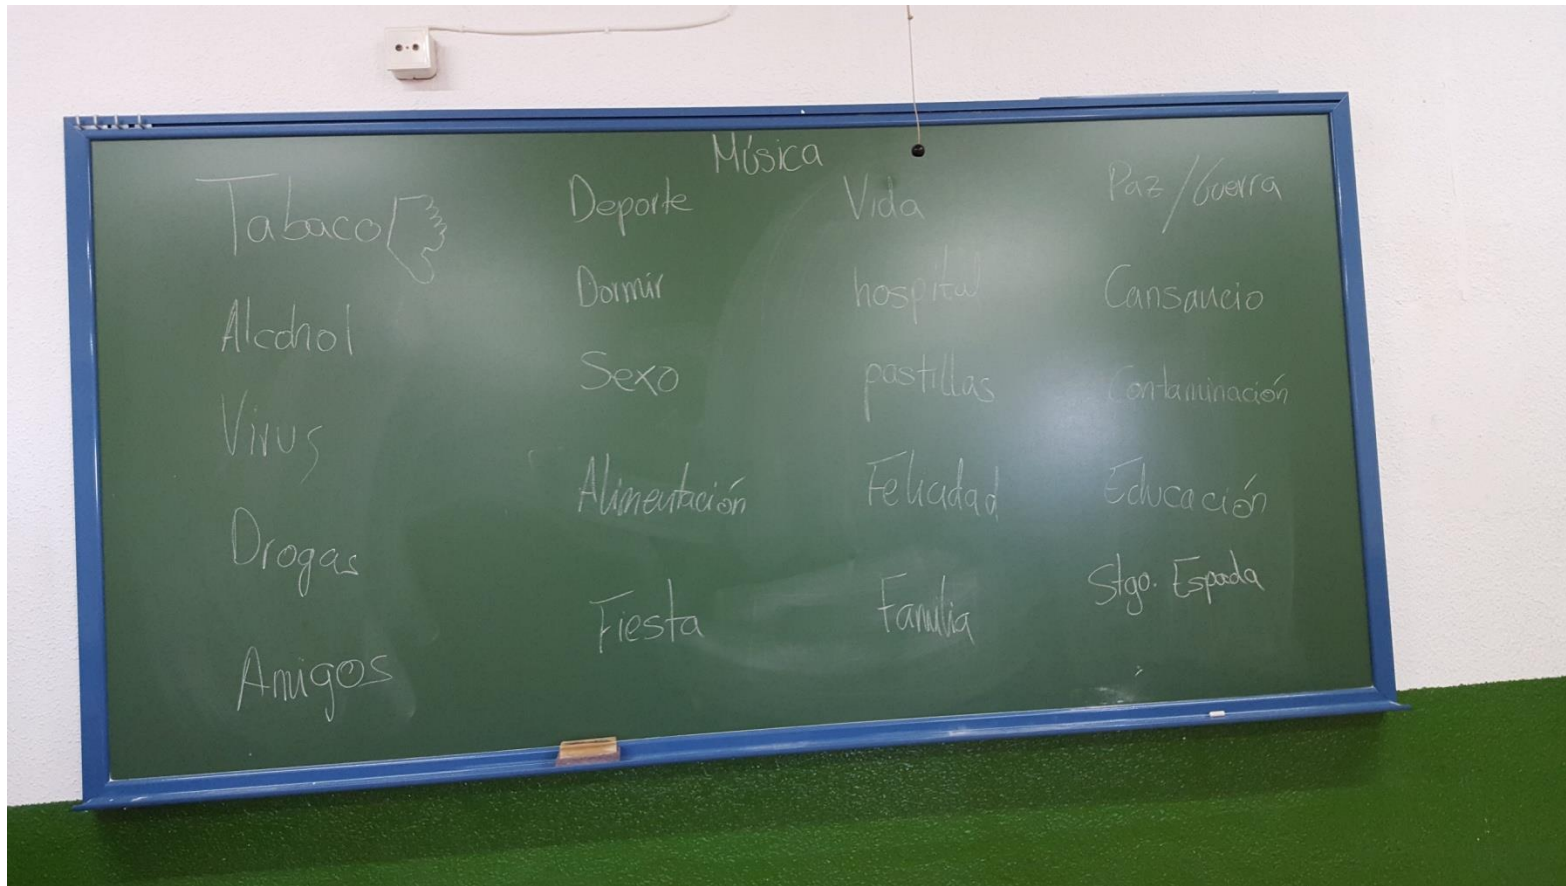 Música
Tabaco
Alcohol
Virus
Drogas
Amigos
Deporte
Dormir
Sexo
Alimentación
Fiesta
Vida
hospital
pastillas
Felicidad
Familia
Paz/Guerra
Cansancio
Contaminación
Educación
Stgo. Espada